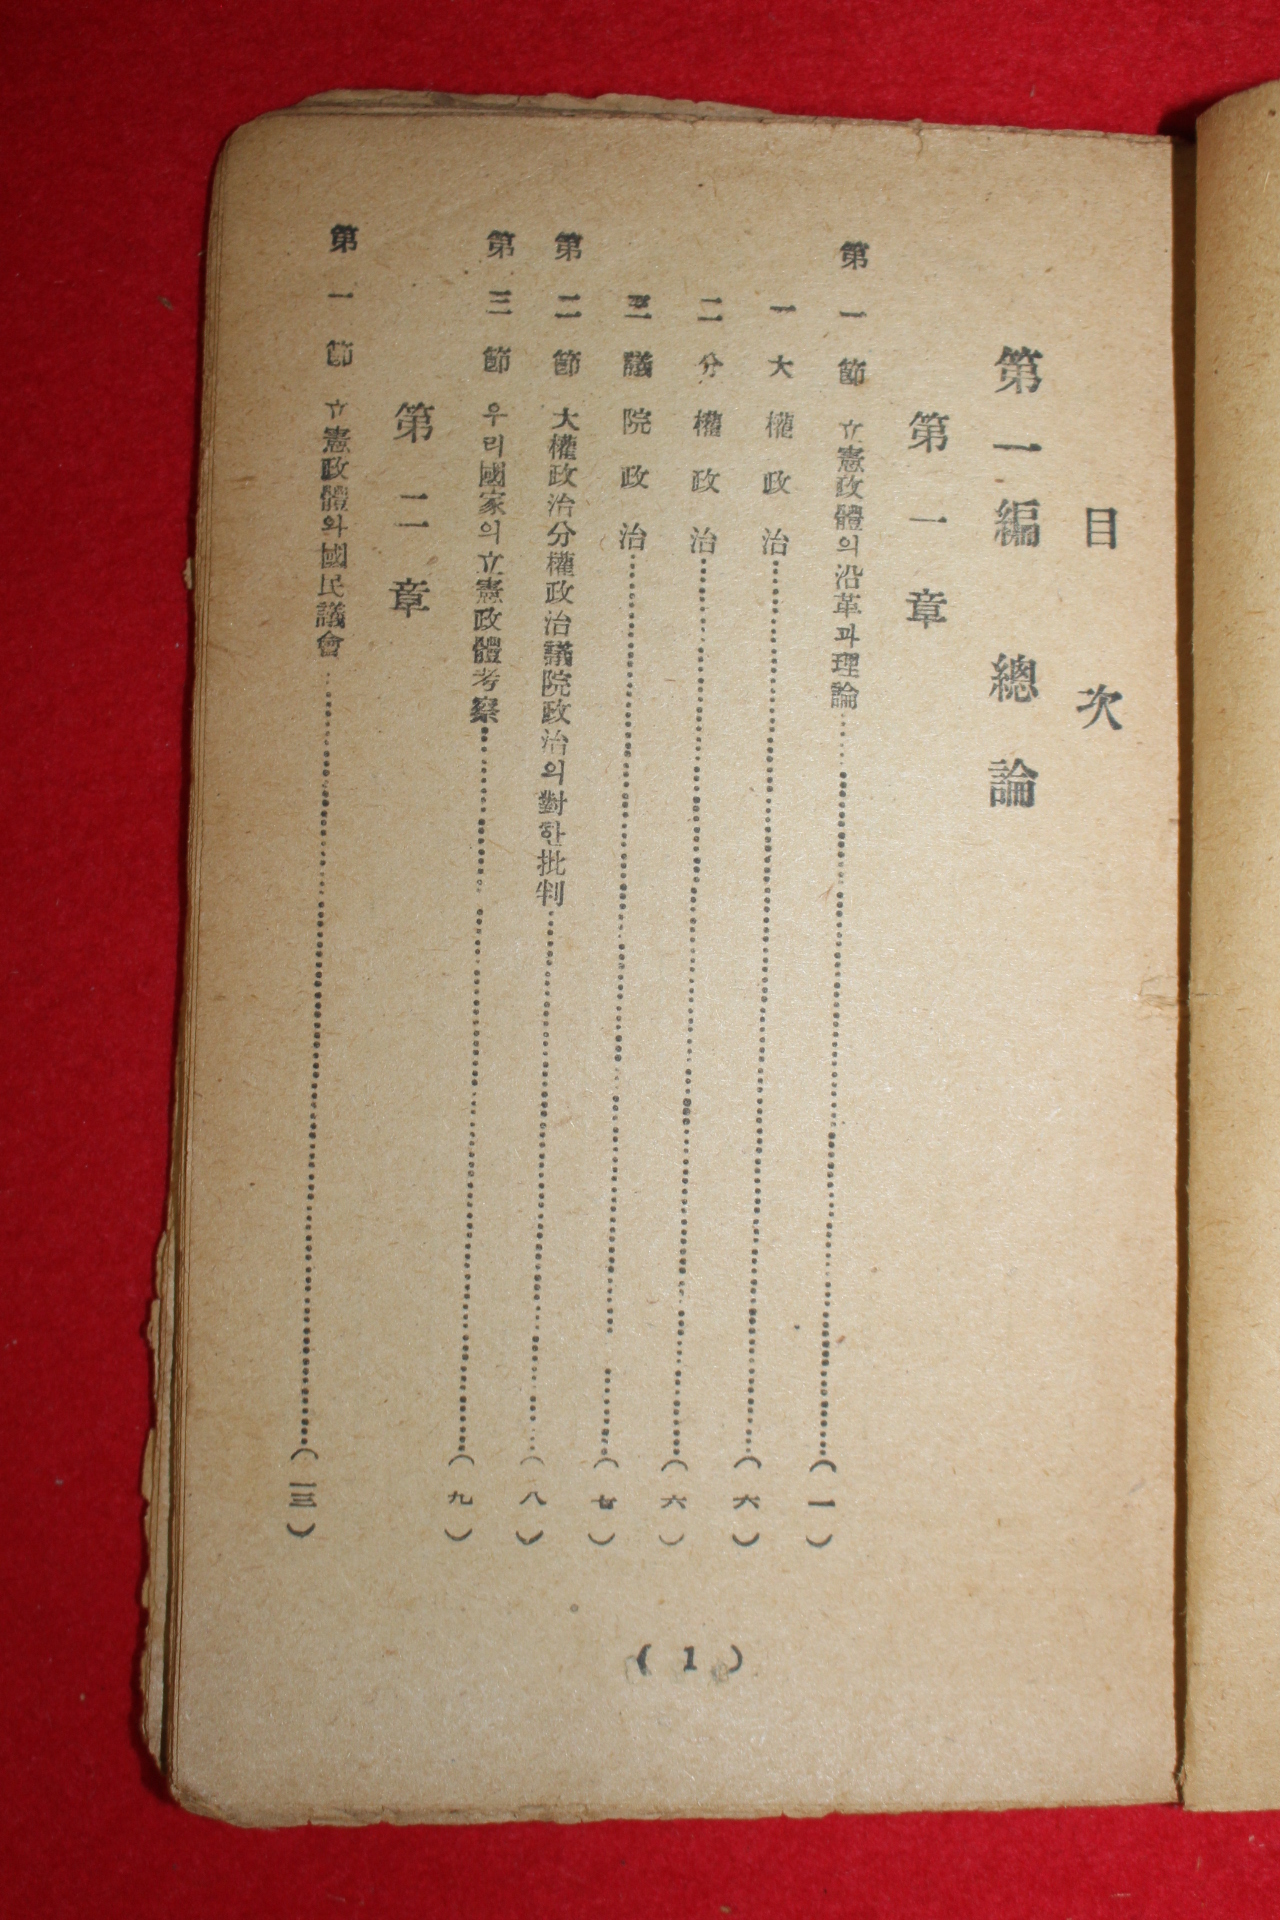 目次
第一編 總論
第一章
第一節 立憲政體의沿革과理論……(一)
一 大權政治……(六)
二 分權政治……(六)
三 議院政治……(七)
第二節 大權政治分權政治議院政治의對한批判……(八)
第三節 우리國家의立憲政體考察……(九)
第二章
第一節 立憲政體와國民議會……(一三)
(1)